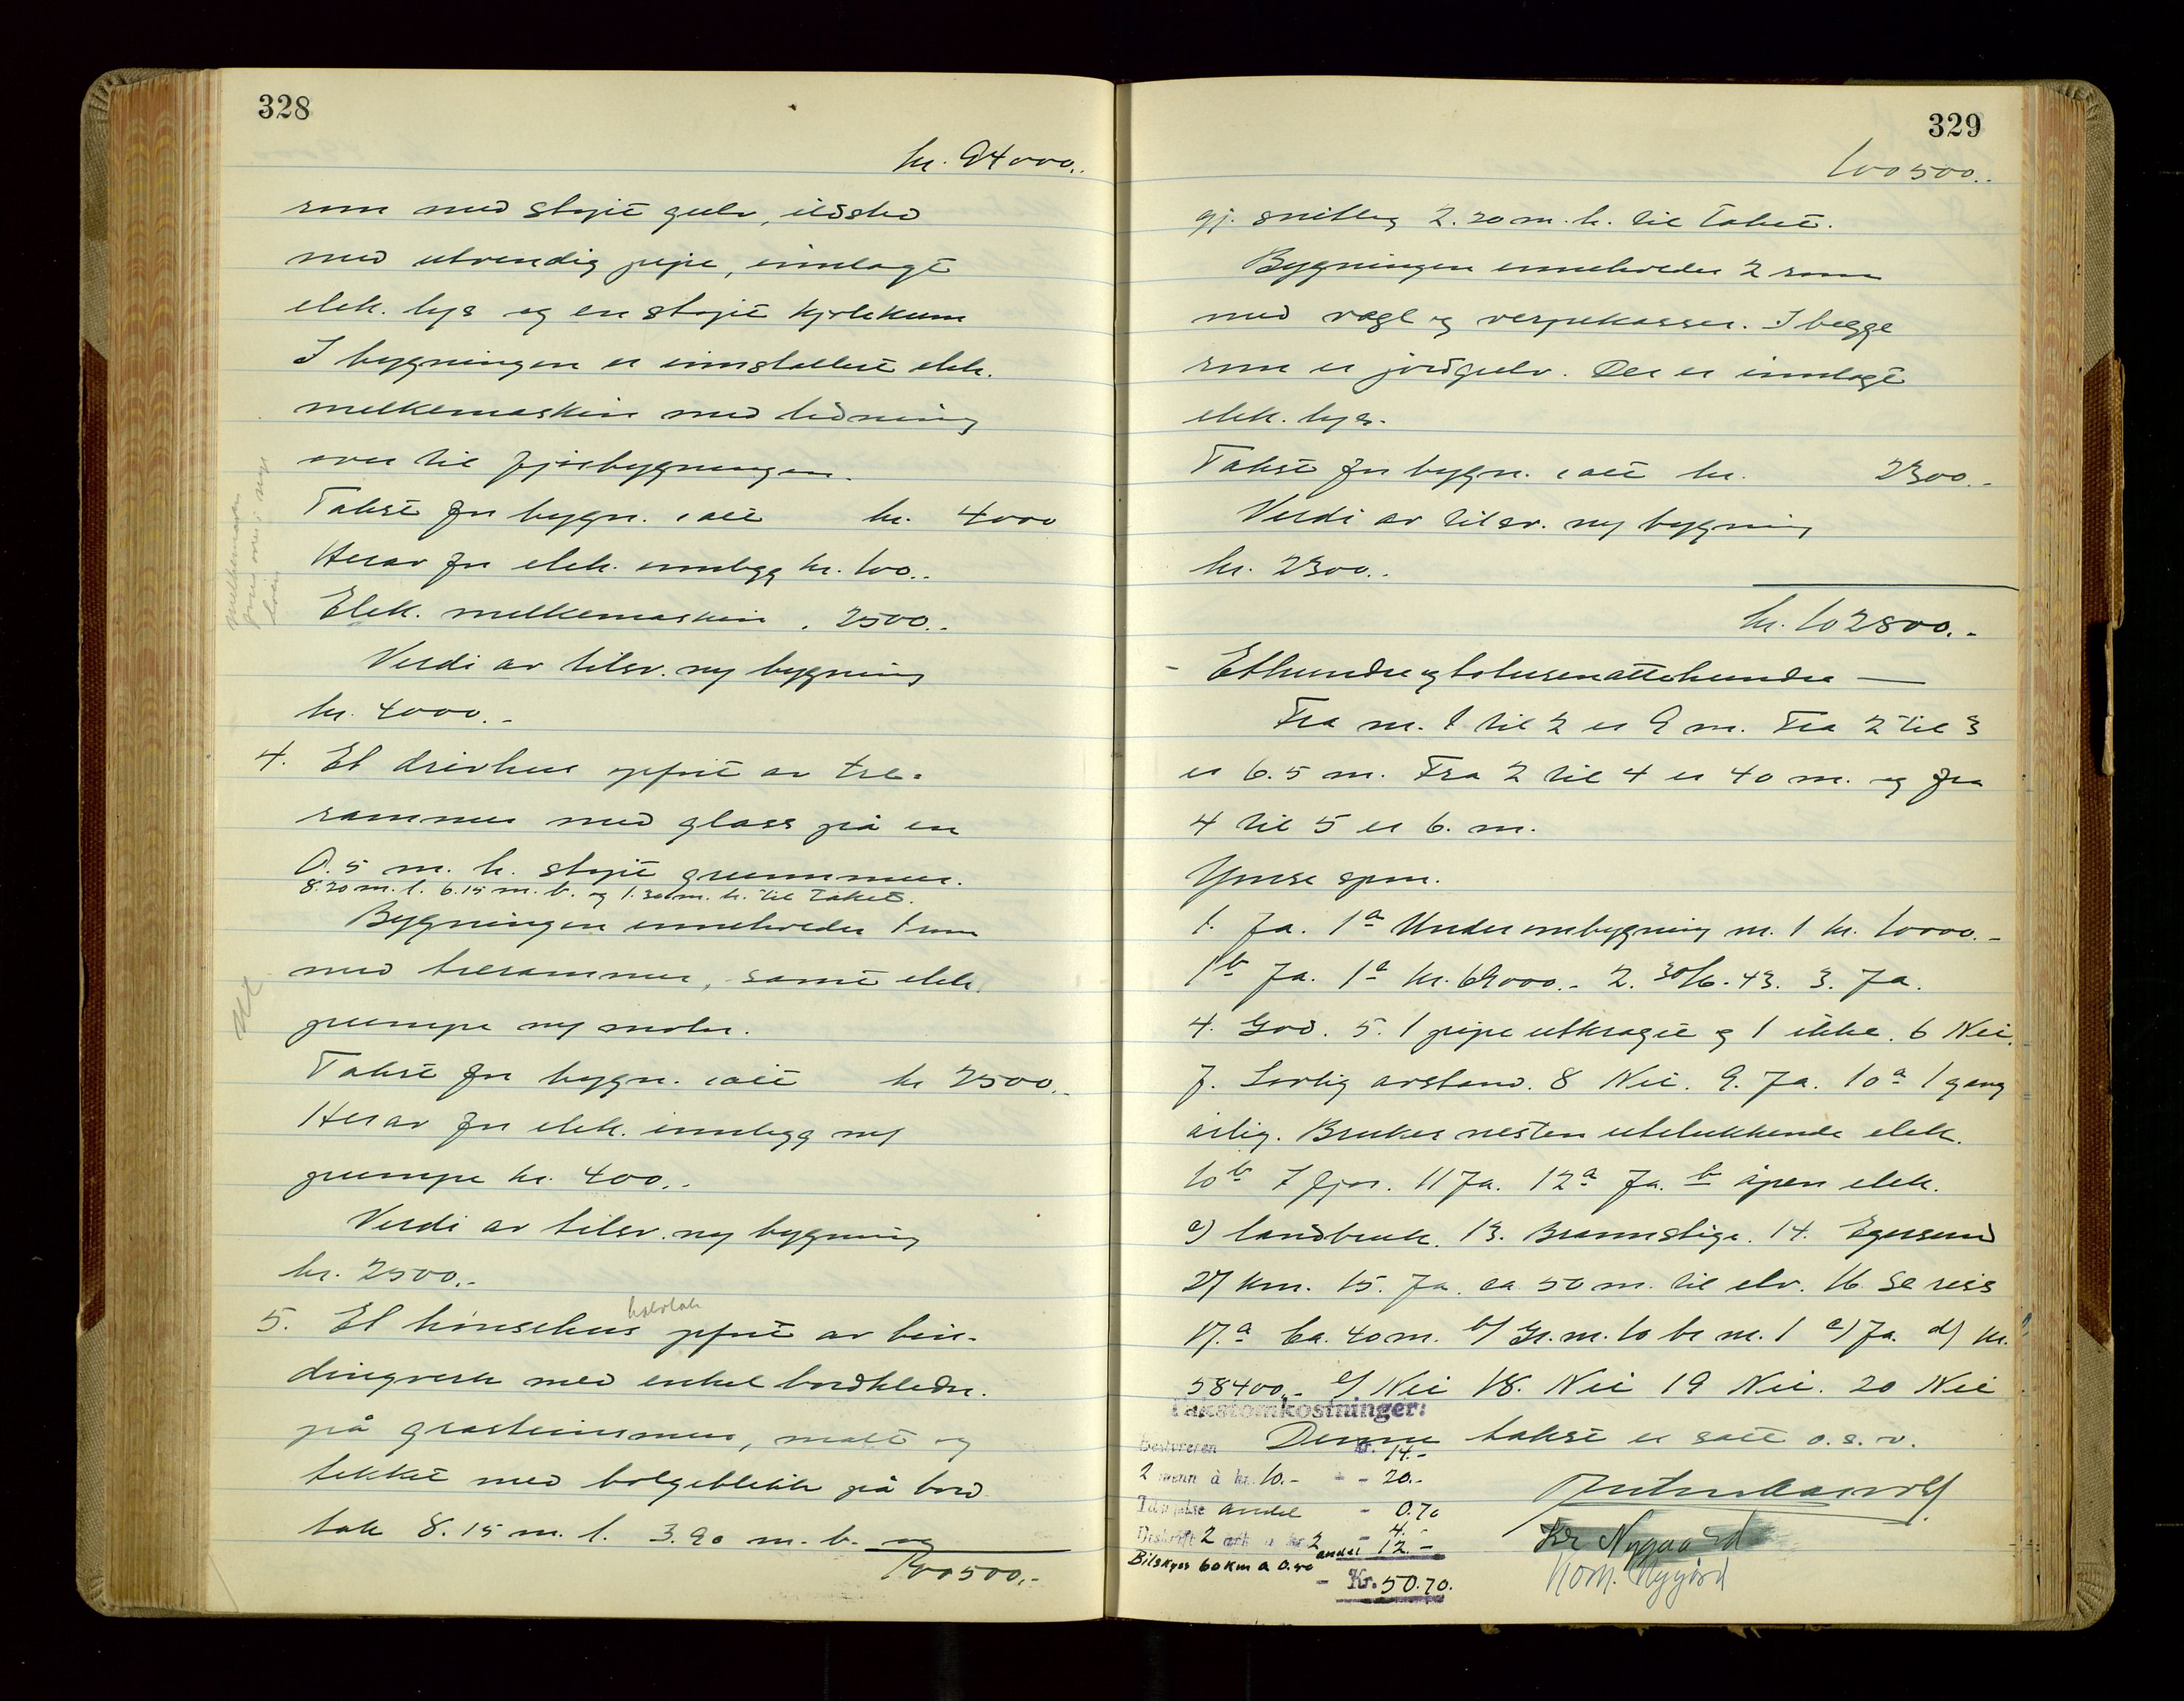 328
kr. 94000.-
rom med støpt gulv, ildsted
med utvendig pipe, innlagt
elek. lys og en støpt kjølekum
I bygningen er innstallert elek.
melkemaskin med ledning
over til fjøsbygningen.
Takst for bygn. i alt kr. 4000
Herav for elek. innlegg kr. 100.-
Elek. melkemaskin . 2500.-
Verdi av tilsv. ny bygning
kr. 4000.-
4. Et drivhus oppført av tre-
rammer med glass på en
0.5 m. h. støpt grunnmur.
8.20 m. l. 6.15 m. b. og 1.30 m. h. til taket.
Bygningen inneholder 1 rom
med trerammer, samt elek.
pumpe m/ motor.
Takst for bygn. i alt kr 2500.-
Herav for elek. innlegg m/
pumpe kr. 400.-
Verdi av tilsv. ny bygning
kr. 2500.-
halvtak
5. Et hønsehus oppført av bin-
dingverk med enkel bordkledn.
på gråsteinsmur, malt og
tekket med bølgeblikk på bord
tak 8.15 m. l. 3.90 m. b. og
100500.-
melkemaskin
over i nye
Ut
329
100500.-
gj. snitlig 2.20 m. h. til taket.
Bygningen inneholder 2 rom
med vagl og verpekasser. I begge
rom er jordgulv. Der er innlagt
elek. lys.
Takst for bygn. i alt kr. 2300.-
Verdi av tilsv. ny bygning
kr. 2300.-
kr. 102800.-
- Ethundreogtotusenåttehundre —
Fra nr. 1 til 2 er 9 m. Fra 2 til 3
er 6.5 m. Fra 2 til 4 er 40 m. og fra
4 til 5 er 6. m.
Ymse spm.
1. Ja. 1a Under ombygning nr. 1 kr. 10000.-
1b Ja. 1a kr. 69000.- 2. 30/6-43. 3. Ja.
4. God. 5. 1 pipe utkraget og 1 ikke. 6 Nei.
7. Lovlig avstand. 8 Nei. 9. Ja. 10a 1 gang
årlig. Bruker nesten utelukkende elek.
10b I fjor. 11 Ja. 12a Ja. b åpen elek.
c) landbruk. 13. Brannstige. 14. Egersund
27 km. 15. Ja. ca. 50 m. til elv. 16. Se riss
17.a Ca. 40 m. b) Gr. nr. 10 br nr. 1 c) Ja. d) kr.
58400.- e) Nei 18. Nei 19 Nei. 20 Nei
Takstomkostninger:
Denne takst er satt o. s. v.
Bestyreren kr. 14.-
2 menn à kr. 10.- - - 20.-
andel - 0.70
2 ark a kr 2 - 4.-
Bilskyss 60 km a 0.40 andel 12.-
- Kr. 50.70.
Kr Nygaard
Kom. Nygård